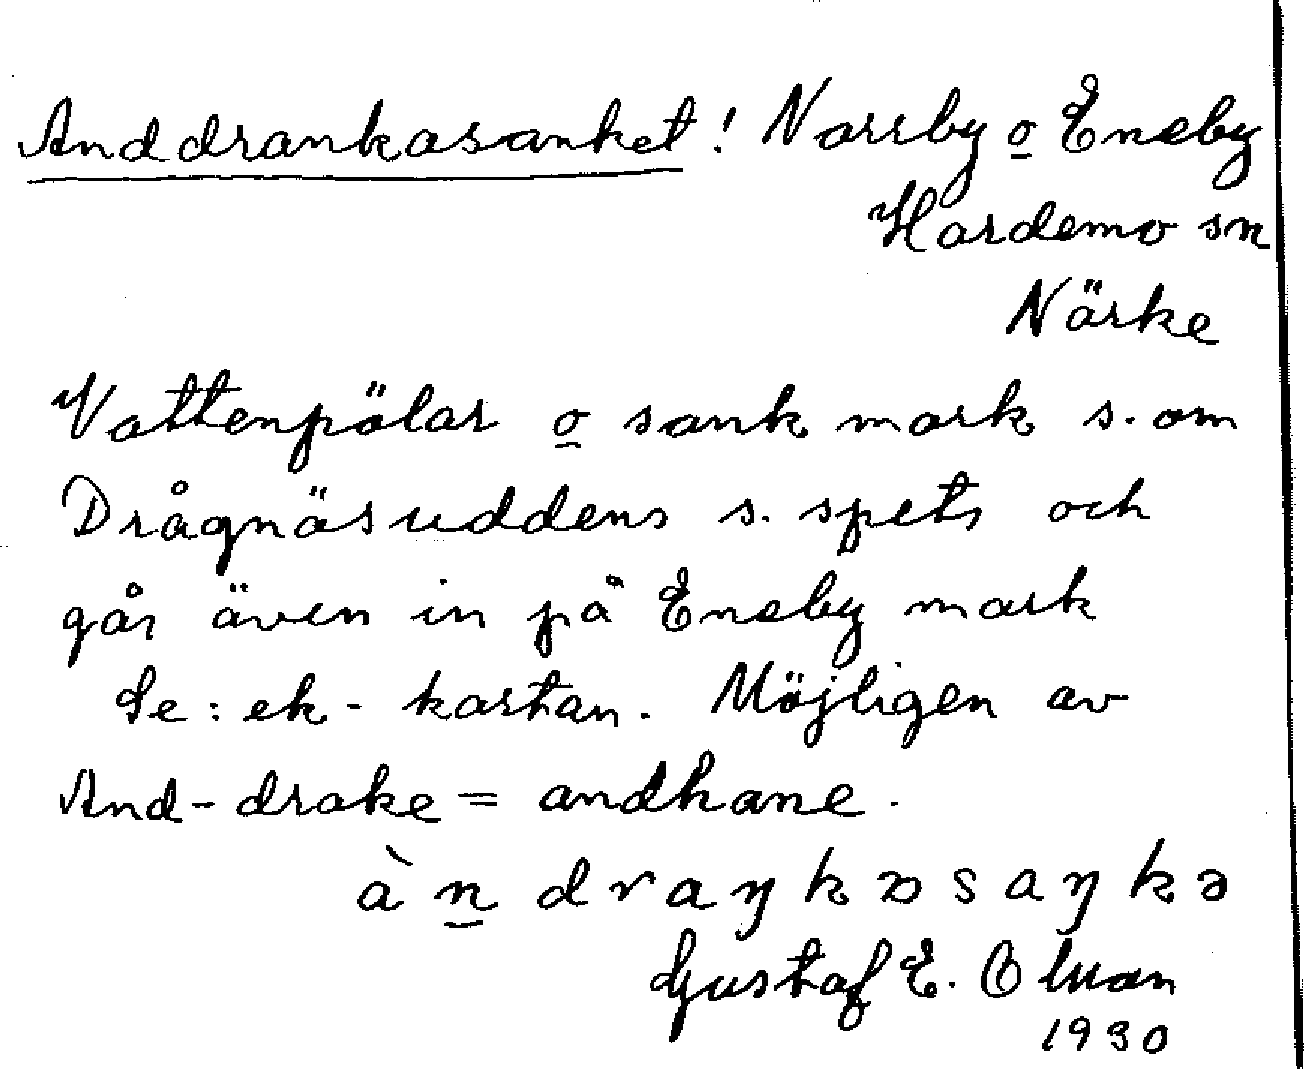 Anddrankasanket! Norrby o Eneby
Hardemo sn
Närke
Vattenpölar o sank mark s. om
Drågnäsuddens s. spets och
går även in på Eneby mark
Se: ek-kartan. Möjligen av
And-drake = andhane.
àn draŋkɒsaŋkə
Gustaf E. Olsson
1930